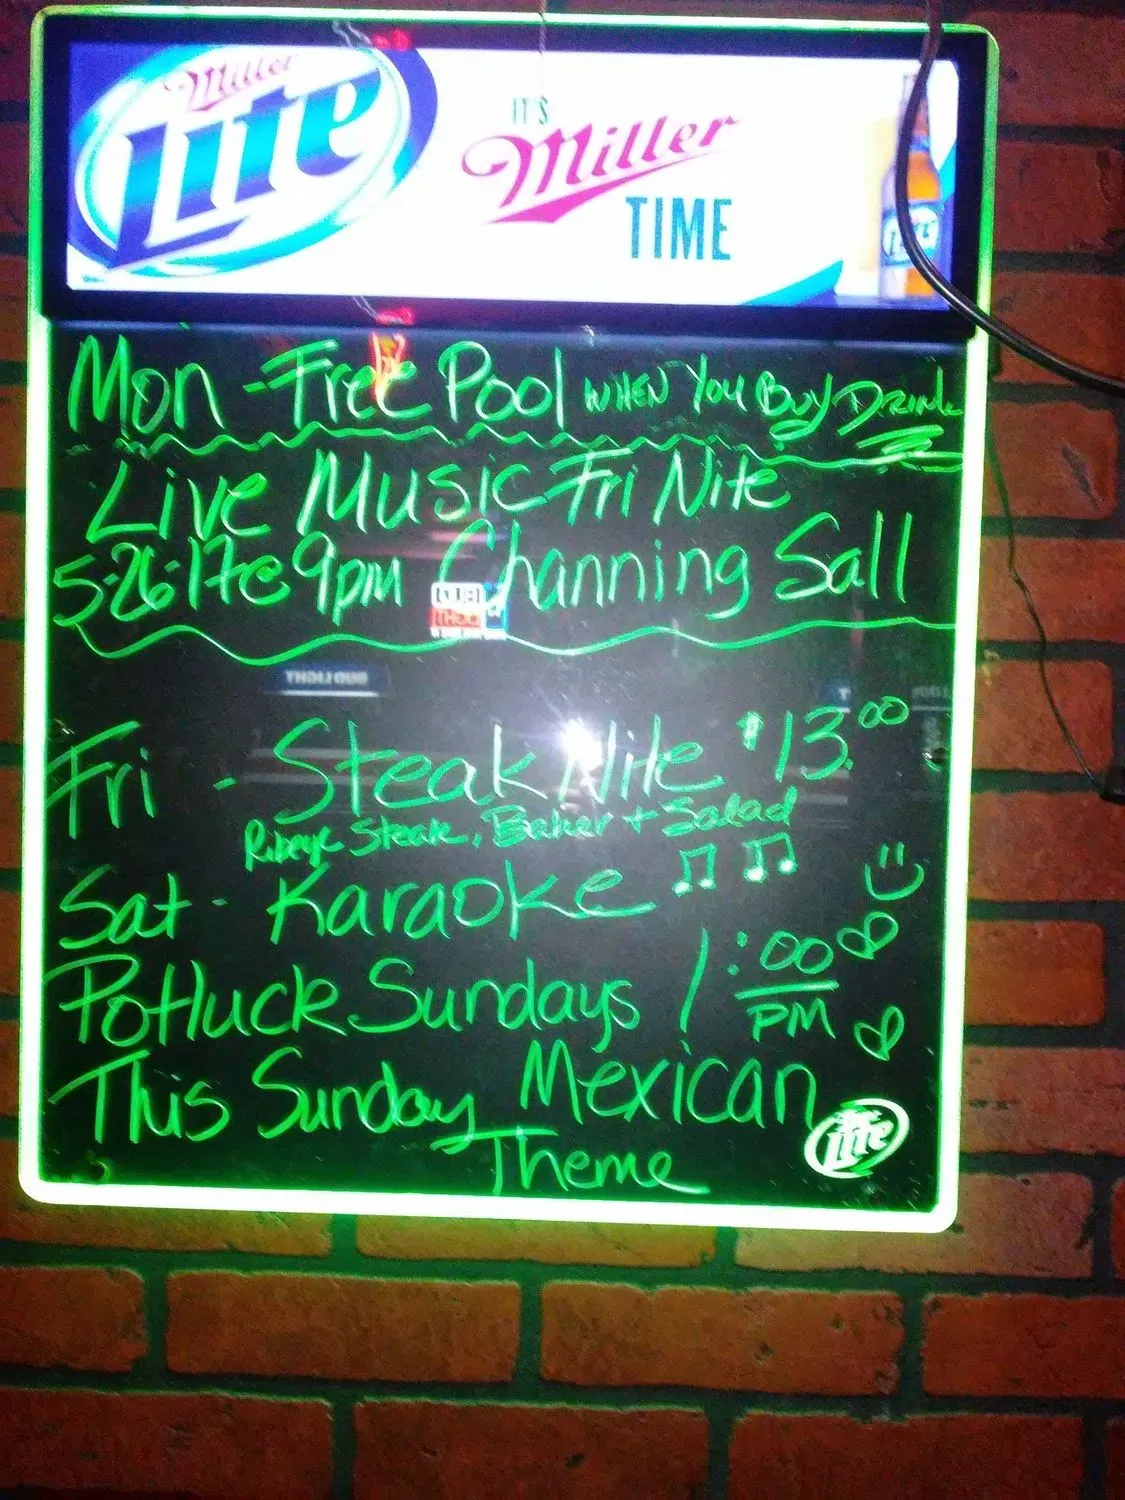 Miller
Lite
IT'S
Miller
TIME
Mon - Free Pool WHEN You Buy Drink
Live Music Fri Nite
5-26-17 @ 9pm Channing Sall
Fri - Steak Nite $13.00
Ribeye Steak, Baker + Salad
Sat - Karaoke
Potluck Sundays 1:00 PM
This Sunday Mexican
Theme
Lite